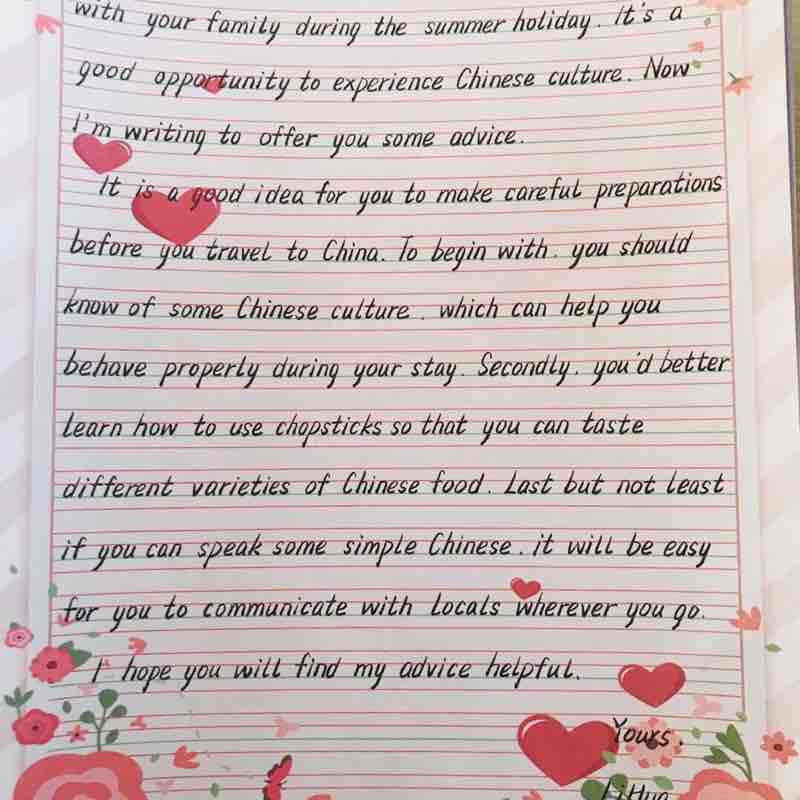 with your family during the summer holiday. It's a
good opportunity to experience Chinese culture. Now
I'm writing to offer you some advice.
It is a good idea for you to make careful preparations
before you travel to China. To begin with, you should
know of some Chinese culture, which can help you
behave properly during your stay. Secondly, you'd better
learn how to use chopsticks so that you can taste
different varieties of Chinese food. Last but not least
if you can speak some simple Chinese, it will be easy
for you to communicate with locals wherever you go.
I hope you will find my advice helpful.
Yours,
LiHua